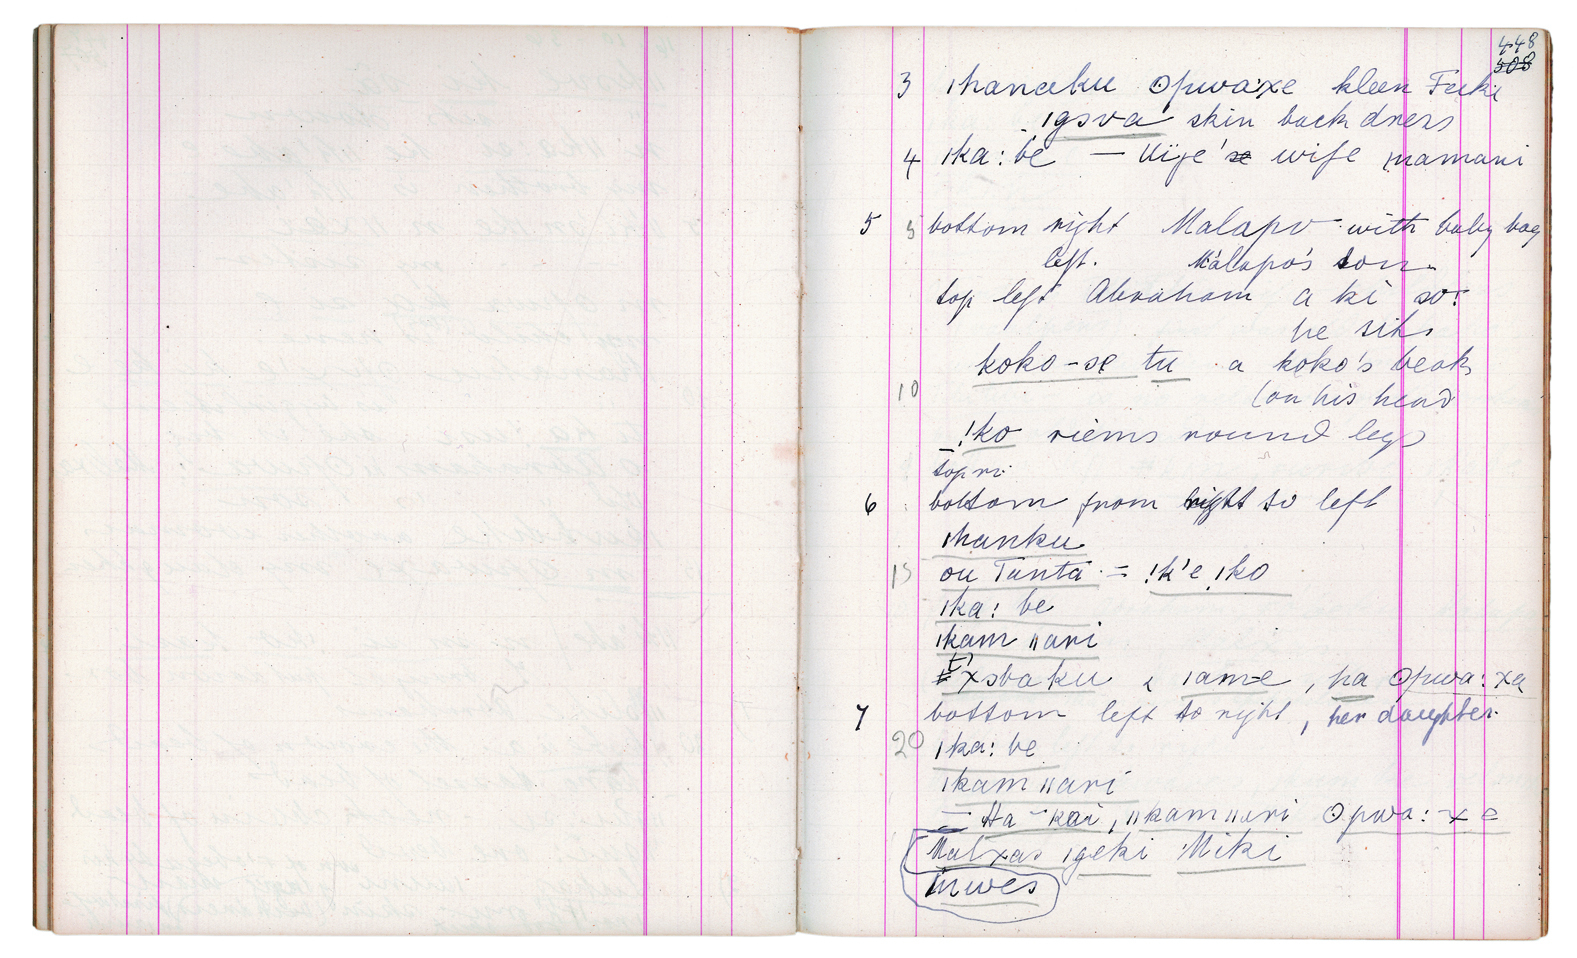 448
508
3 ǀhanceku ʘpwa:xe kleen Fuki
ǀgɔva skin back dress
4 ǀka: be — Uije's wife mamani
5 5 bottom right Malapo with baby bag
left. Malapo's son.
top left Abraham a ki so:
he sits
koko-se tu a koko's beak
10 (on his head
!ko riems round legs
top ri.
6 bottom from right to left
ǀhanku
15 ou Tanta = !k'e ǃko
ǀka: be
ǀkam ǁari
t'xɔbaku & ǀame, ha ʘpwa: xa
7 bottom left to right, her daughter.
20 ǀka: be
ǀkam ǁari
= Ha-kai, ǁkam ǁari ʘpwa: xe
Matxas ǀgeki Miki
inwes